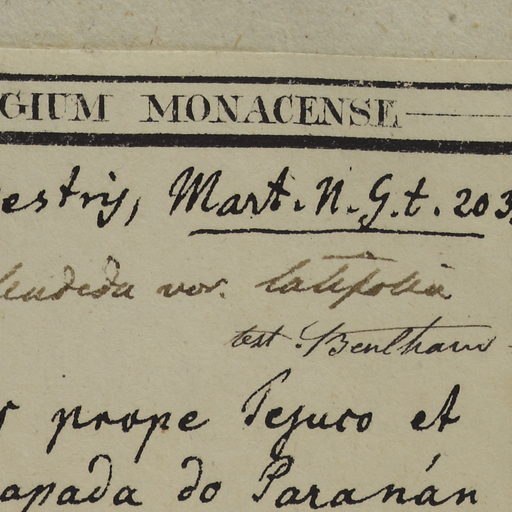 GIUM MONACENSE
estris, Mart. N. G. t. 203
lendida var. latifolia
test. Bentham
prope Tejuco et
apada do Paranán